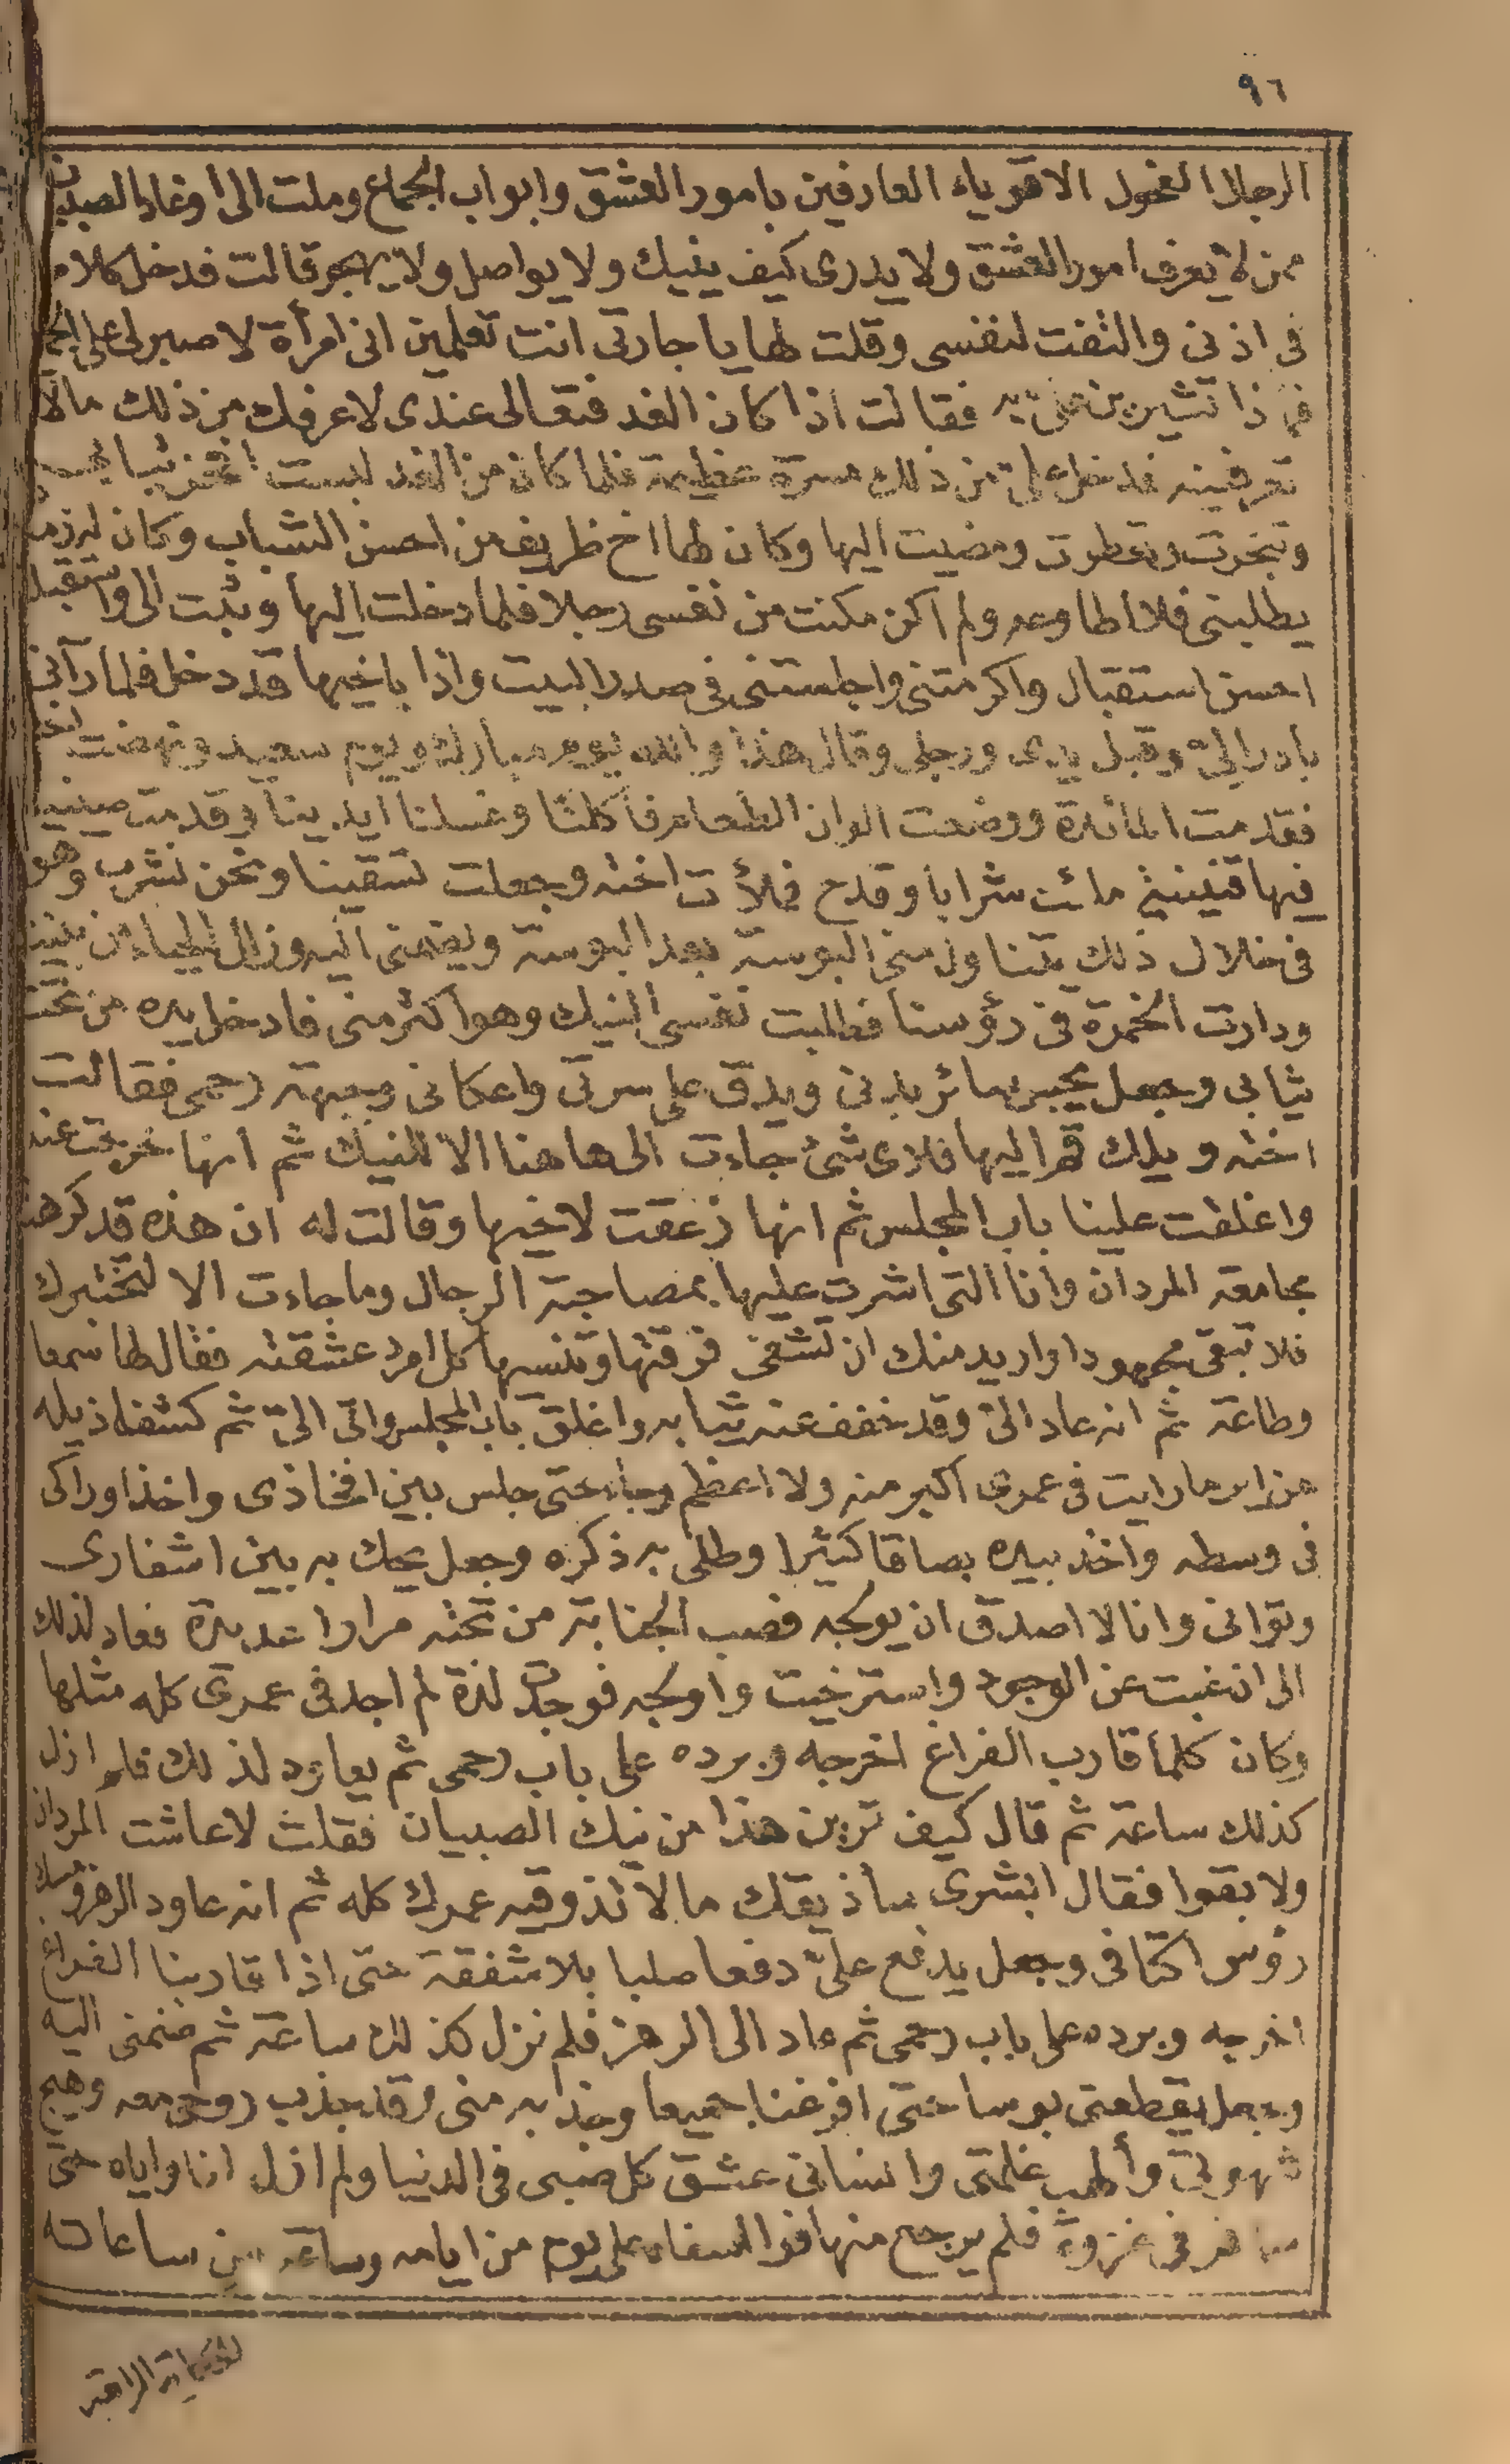 ٩٦
الرجال الفحول الاقوياء العارفين بامور العشق وابواب الجماع وملت الى أوغاد الصبيان
ممن لا يعرف امور العشق ولا يدرى كيف ينيك ولا يواصل ولا يهجر قالت فدخل كلام
فى اذنى والتفت لنفسى وقلت لها يا جارتى انت تعلمين انى امرأة لا صبر لى على
فما ذا تشيرين على به فقالت اذا كان الغد فتعالى عندى لاعرفك من ذلك مالا
تعرفينه فدخل على من ذلك مسرة عظيمة فلما كان من الغد لبست افخر ثيابى
وتبخرت وتعطرت ومضيت اليها وكان لها اخ ظريف من احسن الشباب وكان له
يطلبنى فلا اطاوعه ولم اكن مكنت من نفسى رجلا فلما دخلت اليها وثبت الى واستقبلت
احسن استقبال واكرمتنى واجلستنى فى صدر البيت واذا باخيها قد دخل فلما رآنى
بادر الىّ وقبل يدى ورجلى وقال هذا والله يوم مبارك ويوم سعيد ونهضت اخته
فقدمت المائدة ووضعت الوان الطعام فأكلنا وغسلنا ايدينا وقدمت صينية
فيها قنينية ملئت شرابا وقدح فملأت اخته وجعلت تسقينا ونحن نشرب وهو
فى خلال ذلك يتناول منى البوسة بعد البوسة ويضمنى اليه وزال الحياء من بيننا
ودارت الخمرة فى رؤسنا فطلبت نفسى النيك وهو اكثر منى فادخل يده من تحت
ثيابى وجعل يجس سائر بدنى ويدق على سرتى واعكانى وجبهة رحمى فقالت
اخته ويلك قم اليها فلاى شئ جاءت الى هاهنا الا للنيك ثم انها خرجت عنا
واغلقت علينا باب المجلس ثم انها زعقت لاخيها وقالت له ان هذه قد كرهت
مجامعة المردان وانا التى اشرت عليها بمصاحبة الرجال وما جاءت الا لتختبرك
فلا تبقى مجهودا واريد منك ان تشفى حرقتها وتنسيها كل امرد عشقته فقال لها سمعا
وطاعة ثم انه عاد الىّ وقد خفف عنه ثيابه واغلق باب المجلس واتى الىّ ثم كشف ذيله
عن اير ما رايت فى عمرى اكبر منه ولا اعظم وجاء حتى جلس بين افخاذى واخذ اوراكى
فى وسطه واخذ بيده بصاقا كثيرا وطلى به ذكره وجعل يحك به بين اشفارى
وتوانى وانا لا اصدق ان يولجه فصب الجنابة من تحته مرارا عديدة فعاد لذلك
الى ان غبت عن الوجود واسترخيت واولجه فوجدت لذة لم اجد فى عمرى كله مثلها
وكان كلما قارب الفراغ اخرجه وبرده على باب رحمى ثم يعاود لذلك فلم ازل
كذلك ساعة ثم قال كيف ترين هذا من نيك الصبيان فقلت لا عاشت المردان
ولا بقوا فقال ابشرى ساذيقك مالا تذوقيه عمرك كله ثم انه عاود الرهز ومسك
رؤس اكتافى وجعل يدفع علىّ دفعا صلبا بلا شفقة حتى اذا قاربنا الفراغ
اخرجه وبرده على باب رحمى ثم عاد الى الرهز فلم نزل كذلك ساعة ثم ضمنى اليه
وجعل يقطعنى بوسا حتى افرغنا جميعا وجذبه منى وقد جذب روحى معه وهيج
شهوتى وألهب غلمتى وانسانى عشق كل صبى فى الدنيا ولم ازل انا واياه حتى
سافر فى غزوة فلم يرجع منها فوا اسفاه على يوم من ايامه وساعة من ساعاته
الحكاية الرابعة